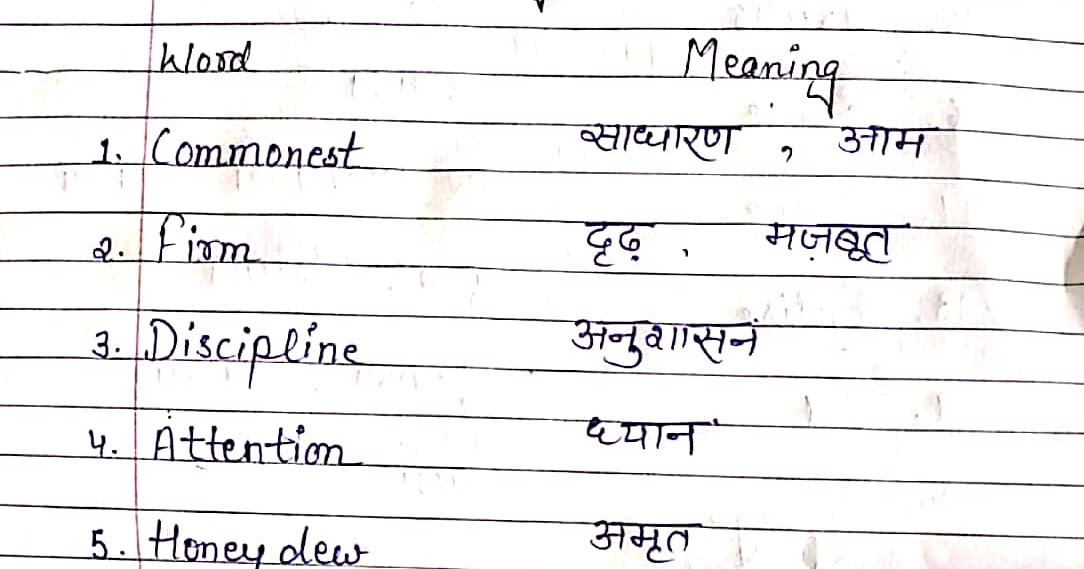 Word Meaning
1. Commonest साधारण , आम
2. Firm दृढ़ , मज़बूत
3. Discipline अनुशासन
4. Attention ध्यान
5. Honey dew अमृत